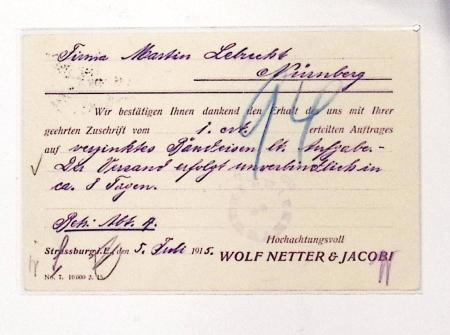 Firma Martin Lebrecht
Nürnberg
Wir bestätigen Ihnen dankend den Erhalt des uns mit Ihrer
geehrten Zuschrift vom 1. crt. erteilten Auftrages
auf verzinktes Bandeisen lt. Aufgabe.-
Der Versand erfolgt unverbindlich in
ca. 8 Tagen.
94
Betr. Abt. A.
Hochachtungsvoll
Strassburg i. E., den 5. Juli 1915.
WOLF NETTER & JACOBI
No. 7. 10 000 2. 15